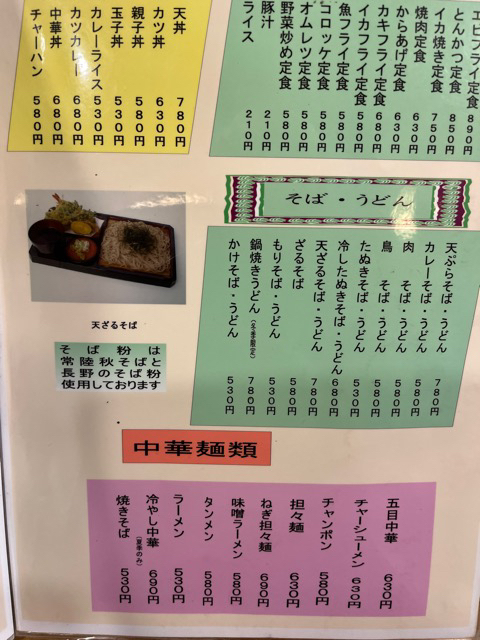 エビフライ定食 890円
とんかつ定食 850円
イカ焼き定食 750円
焼肉定食 630円
からあげ定食 630円
カキフライ定食 680円
イカフライ定食 580円
魚フライ定食 580円
コロッケ定食 580円
オムレツ定食 580円
野菜炒め定食 580円
豚汁 210円
ライス 210円
天丼 780円
カツ丼 630円
親子丼 580円
玉子丼 530円
カレーライス 530円
カツカレー 680円
中華丼 680円
チャーハン 580円
そば・うどん
天ぷらそば・うどん 780円
カレーそば・うどん 580円
肉 そば・うどん 580円
鳥 そば・うどん 580円
たぬきそば・うどん 530円
冷したぬきそば・うどん 680円
天ざるそば・うどん 780円
ざるそば 580円
もりそば・うどん 530円
鍋焼きうどん(冬季限定) 780円
かけそば・うどん 530円
天ざるそば
そば粉は
常陸秋そばと
長野のそば粉
使用しております
中華麺類
五目中華 630円
チャーシューメン 630円
チャンポン 580円
担々麺 630円
ねぎ担々麺 690円
味噌ラーメン 580円
タンメン 580円
ラーメン 530円
冷やし中華(夏季のみ) 690円
焼きそば 530円